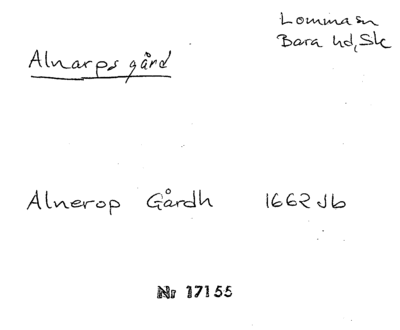 Lomma sn
Bara hd, Sk
Alnarps gård
Alnerop Gårdh 1662 Jb
Nr 17155